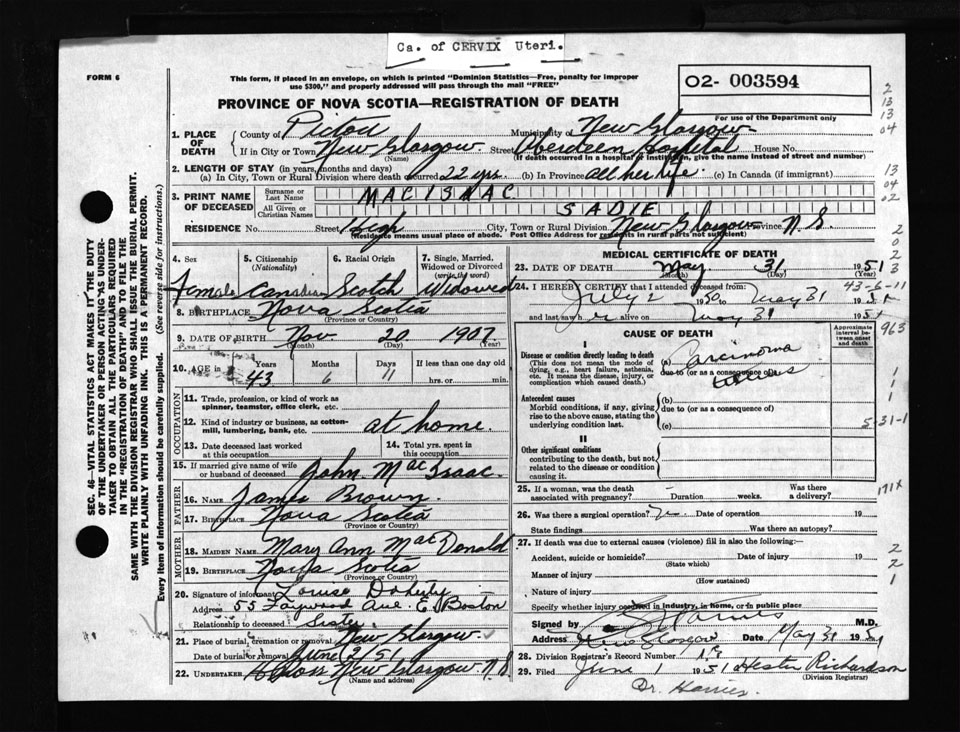 Ca. of CERVIX Uteri.
FORM 6
This form, if placed in an envelope, on which is printed "Dominion Statistics—Free, penalty for improper
use $300," and properly addressed will pass through the mail "FREE"
O2- 003594
For use of the Department only
PROVINCE OF NOVA SCOTIA—REGISTRATION OF DEATH
1. PLACE OF DEATH
County of Pictou Municipality of New Glasgow
If in City or Town New Glasgow Street Aberdeen Hospital House No.
(Name) (If death occurred in a hospital or institution, give the name instead of street and number)
2. LENGTH OF STAY (in years, months and days)
(a) In City, Town or Rural Division where death occurred 22 yrs. (b) In Province all her life (c) In Canada (if immigrant)
3. PRINT NAME OF DECEASED
Surname or Last Name MACISAAC
All Given or Christian Names SADIE
RESIDENCE House No. Street High City, Town or Rural Division New Glasgow Province N.S.
(Residence means usual place of abode. Post Office Address for residents in rural parts not sufficient)
4. Sex Female
5. Citizenship (Nationality) Canadian
6. Racial Origin Scotch
7. Single, Married, Widowed or Divorced (write the word) Widowed
8. BIRTHPLACE Nova Scotia
(Province or Country)
9. DATE OF BIRTH Nov. 20 1907
(Month) (Day) (Year)
10. AGE in Years 43 Months 6 Days 11 If less than one day old hrs. or min.
OCCUPATION
11. Trade, profession, or kind of work as
spinner, teamster, office clerk, etc.
12. Kind of industry or business, as cotton-
mill, lumbering, bank, etc. at home.
13. Date deceased last worked at this occupation
14. Total yrs. spent in this occupation
15. If married give name of wife
or husband of deceased John MacIsaac
FATHER
16. NAME James Brown
17. BIRTHPLACE Nova Scotia
(Province or Country)
MOTHER
18. MAIDEN NAME Mary Ann MacDonald
19. BIRTHPLACE Nova Scotia
(Province or Country)
20. Signature of informant Louise Doherty
Address 55 Faywood Ave. E. Boston
Relationship to deceased Sister
21. Place of burial, cremation or removal New Glasgow
Date of burial or removal June 2/51
22. UNDERTAKER New Glasgow N.S.
(Name and address)
MEDICAL CERTIFICATE OF DEATH
23. DATE OF DEATH May 31 1951
(Month) (Day)
43-6-11
24. I HEREBY CERTIFY that I attended deceased from:
July 2 1950 to May 31 1951
and last saw her alive on May 31 1951
CAUSE OF DEATH
Approximate interval between onset and death
963
I
Disease or condition directly leading to death
(This does not mean the mode of
dying, e.g., heart failure, asthenia,
etc. It means the disease, injury, or
complication which caused death.)
(a) Carcinoma
due to (or as a consequence of)
Antecedent causes
Morbid conditions, if any, giving
rise to the above cause, stating the
underlying condition last.
(b)
due to (or as a consequence of)
(c)
5-31-1
II
Other significant conditions
contributing to the death, but not
related to the disease or condition
causing it.
25. If a woman, was the death
associated with pregnancy? - Duration weeks. Was there a delivery?
171x
26. Was there a surgical operation? Date of operation 19
State findings Was there an autopsy?
27. If death was due to external causes (violence) fill in also the following:—
Accident, suicide or homicide? Date of injury 19
(State which)
Manner of injury
(How sustained)
Nature of injury
Specify whether injury occurred in industry, in home, or in public place
Signed by M.D.
Address New Glasgow Date May 31 1951
28. Division Registrar's Record Number
29. Filed June 1 1951 Hester Richardson
(Division Registrar)
Dr. Harries.
SEC. 46—VITAL STATISTICS ACT MAKES IT THE DUTY
OF THE UNDERTAKER OR PERSON ACTING AS UNDER-
TAKER TO OBTAIN ALL THE PARTICULARS REQUIRED
IN THE "REGISTRATION OF DEATH" AND TO FILE THE
SAME WITH THE DIVISION REGISTRAR WHO SHALL ISSUE THE BURIAL PERMIT.
WRITE PLAINLY WITH UNFADING INK. THIS IS A PERMANENT RECORD.
Every item of information should be carefully supplied. (See reverse side for instructions.)
2
13
13
04
13
04
02
2
0
2
3
1
1
1
2
2
1